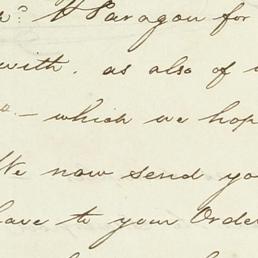 Paragon for
with, as also of
which we hop
We now send yo
have to your Orde